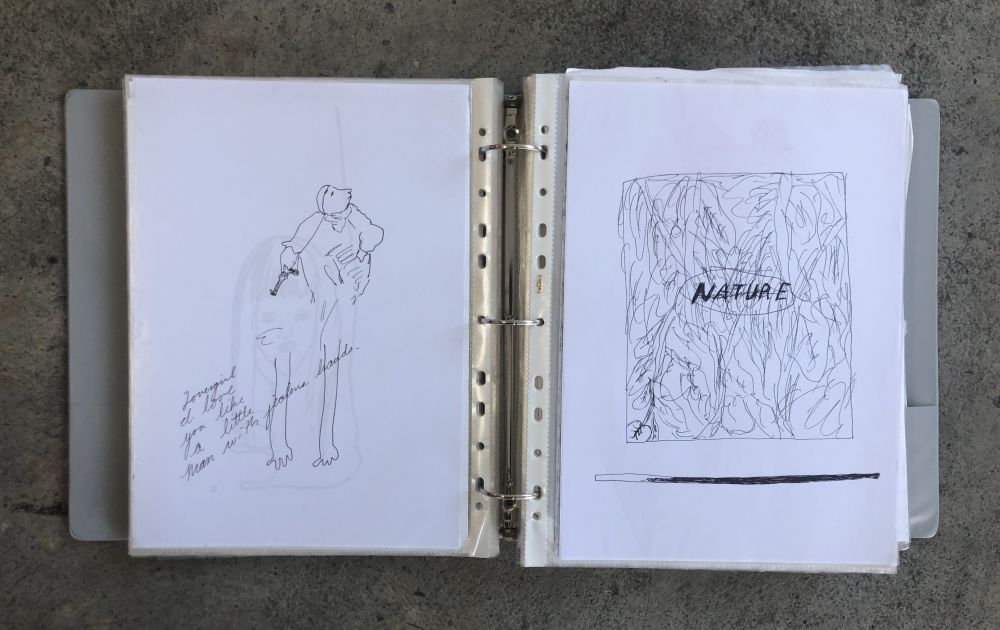 Lovergirl
I love
you like
a little
man with jealous hands.
NATURE